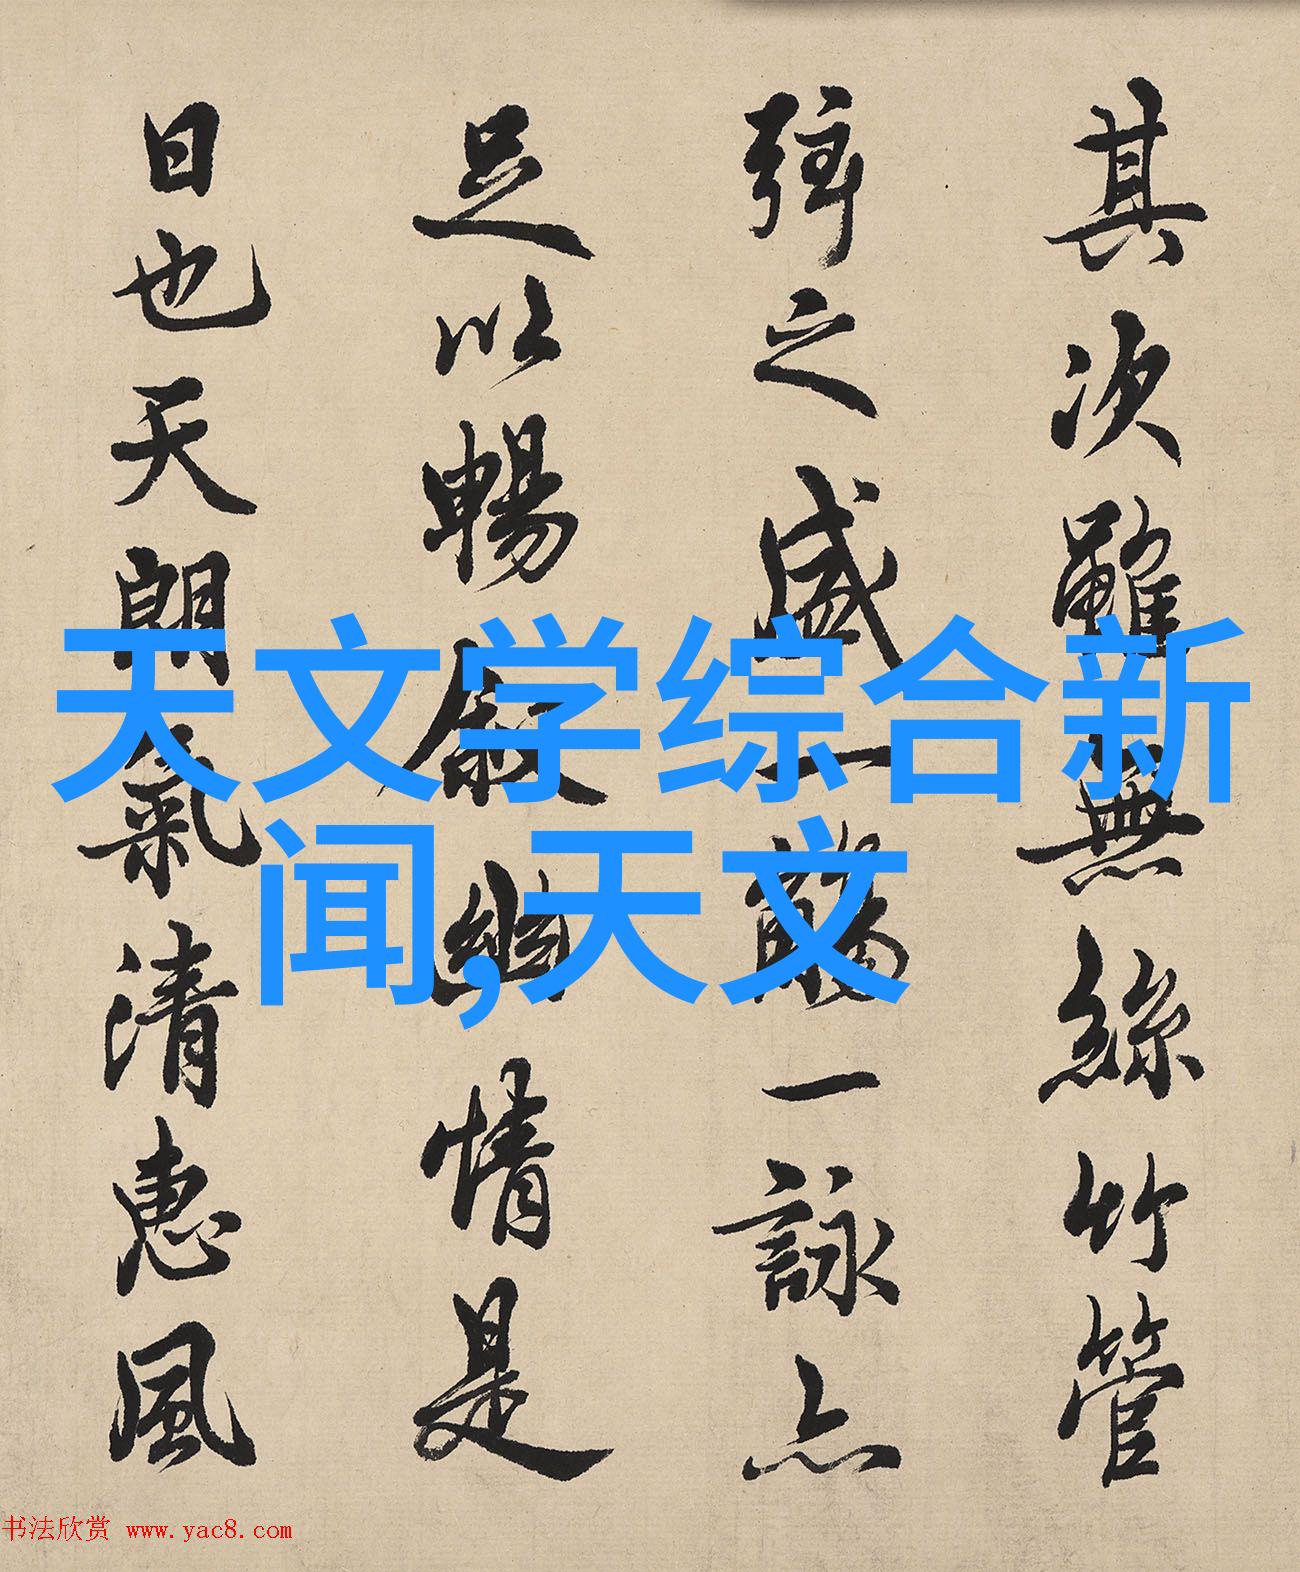 其次雖無絲竹管
弦之盛一觴一詠亦
足以暢敘幽情是
日也天朗氣清惠風
天文学综合新
闻,天文
书法欣赏 www.yac8.com